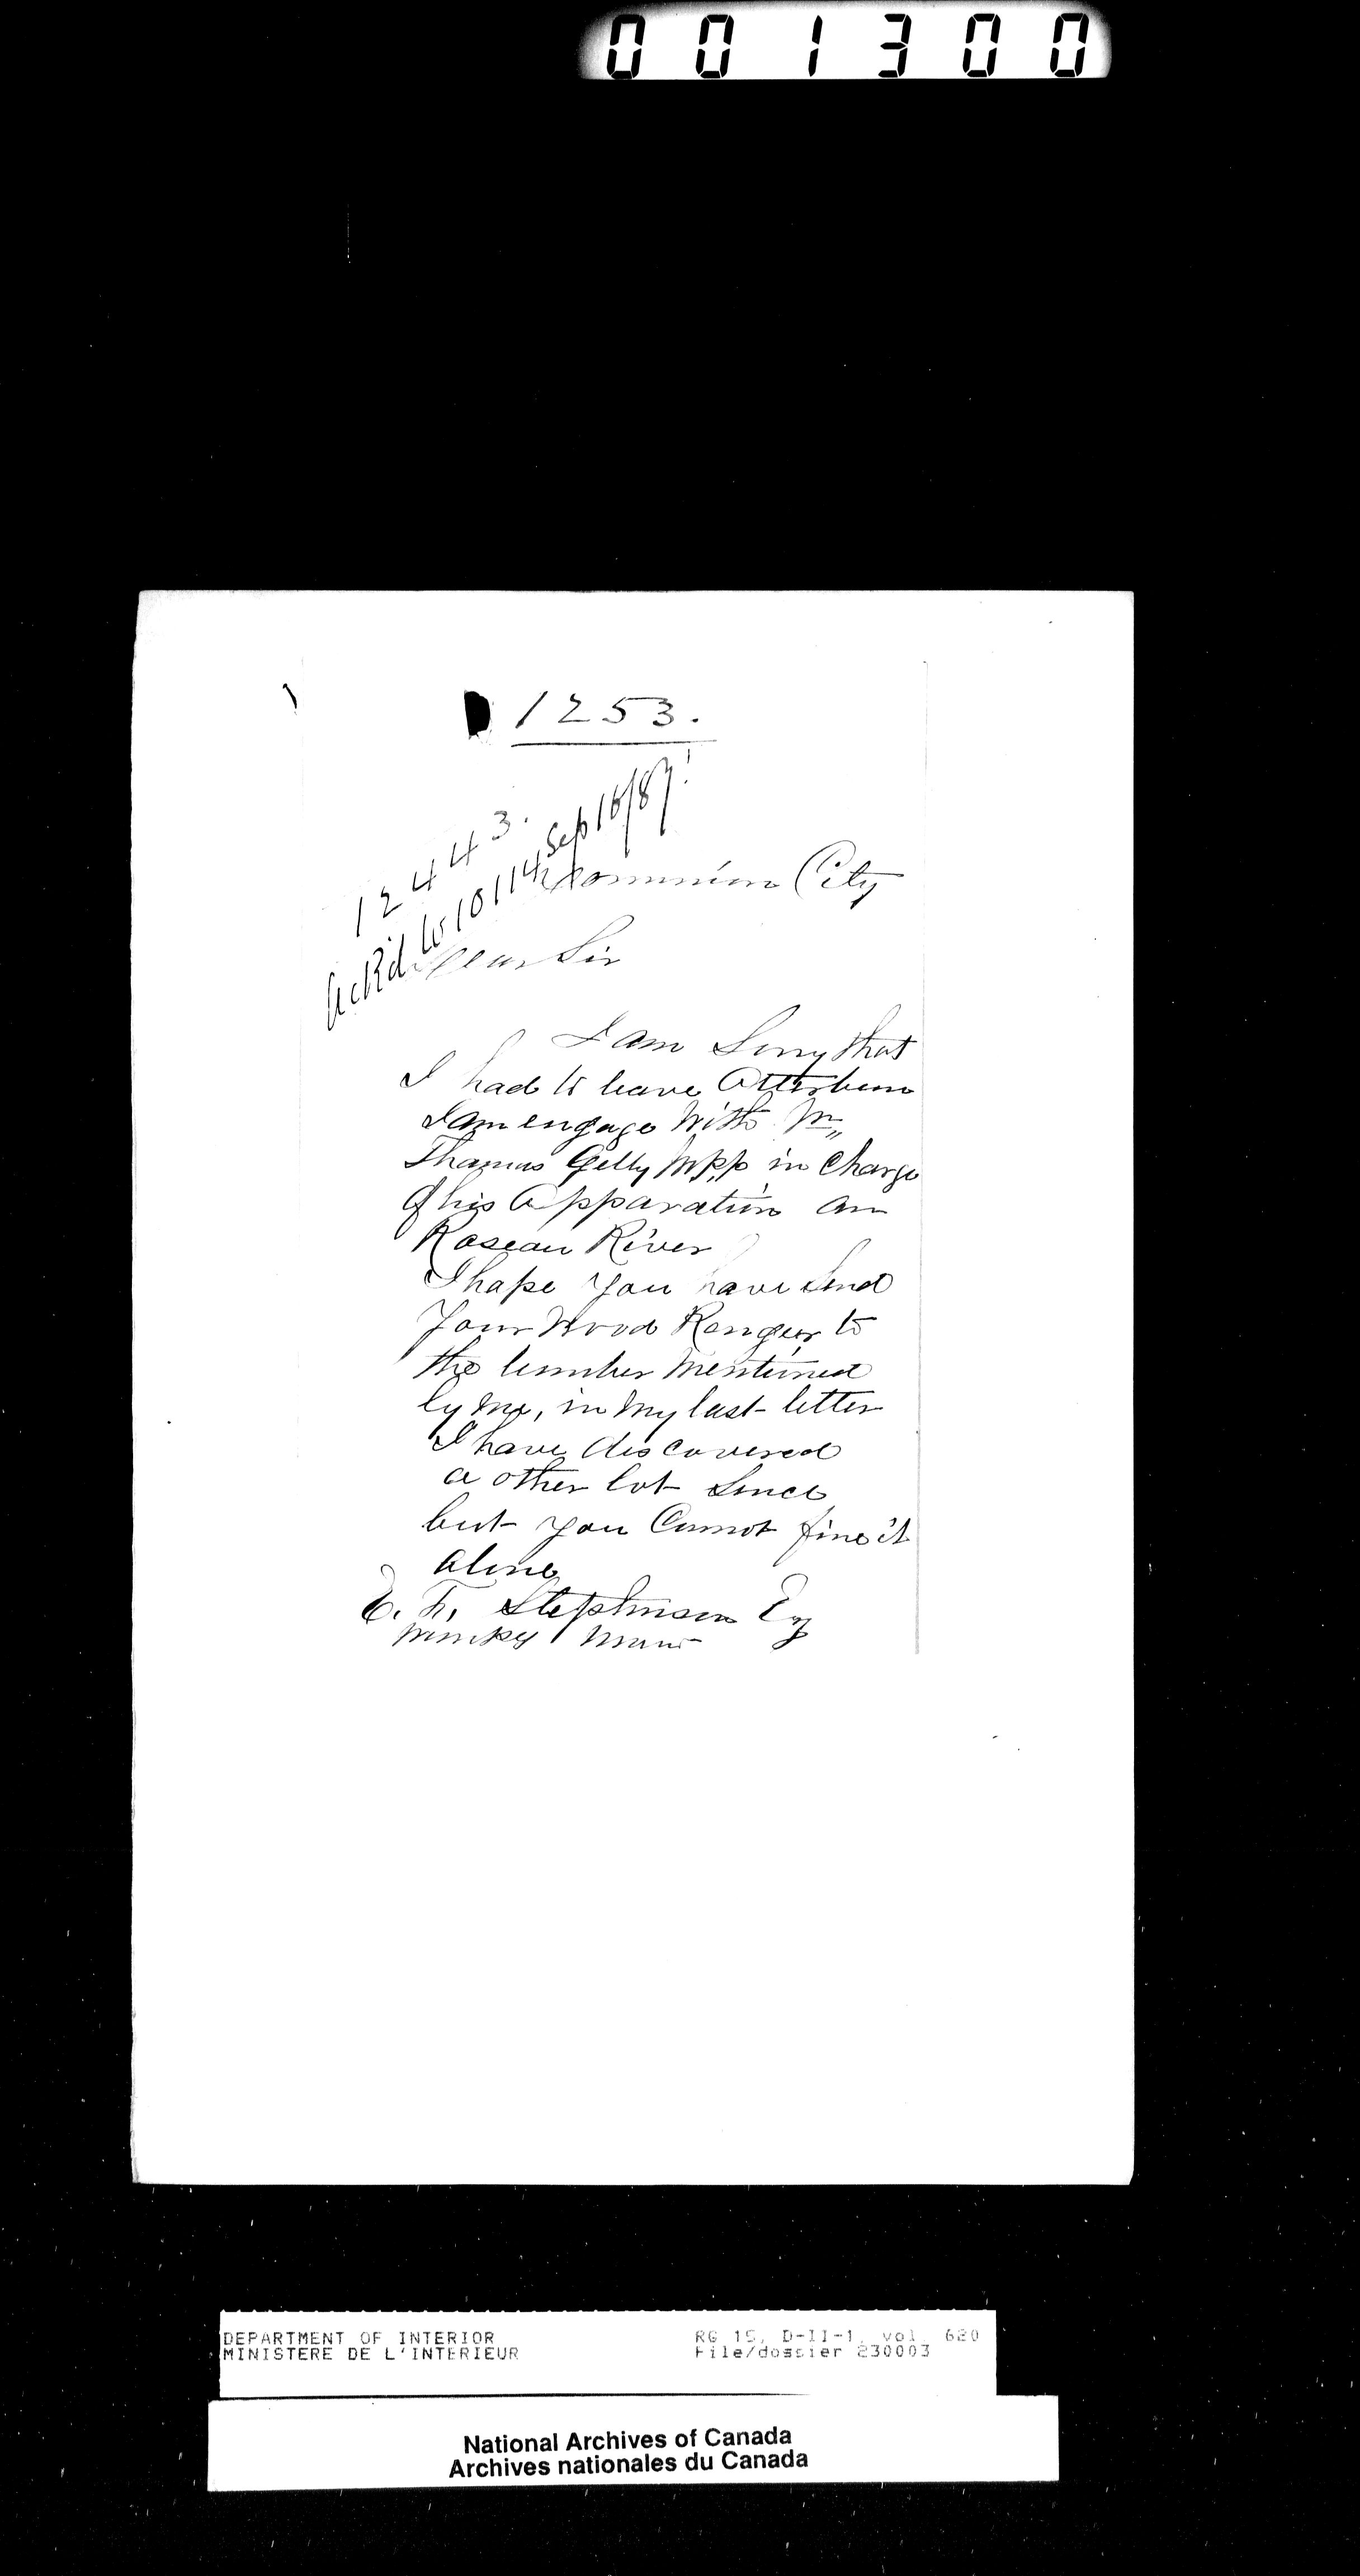 001300
1253.
12443.
Ackd. 10114 Sep 16/87.
Dominion City
Dear Sir
I am Sorry that
I had to leave Otterburn
I am engage With Mr,,
Thamas Gelly M.P.P in Charge
Of his Apparation an
Roseau River
I hope you have Send
Your Wood Ranger to
the lumber mentioned
by me, in my last letter
I have discovered
a other lot Since
but you Cannot fine it
alone
E. F. Stephenson Esq
DEPARTMENT OF INTERIOR
MINISTERE DE L'INTERIEUR
RG 15, D-II-1, vol. 620
File/dossier 230003
National Archives of Canada
Archives nationales du Canada